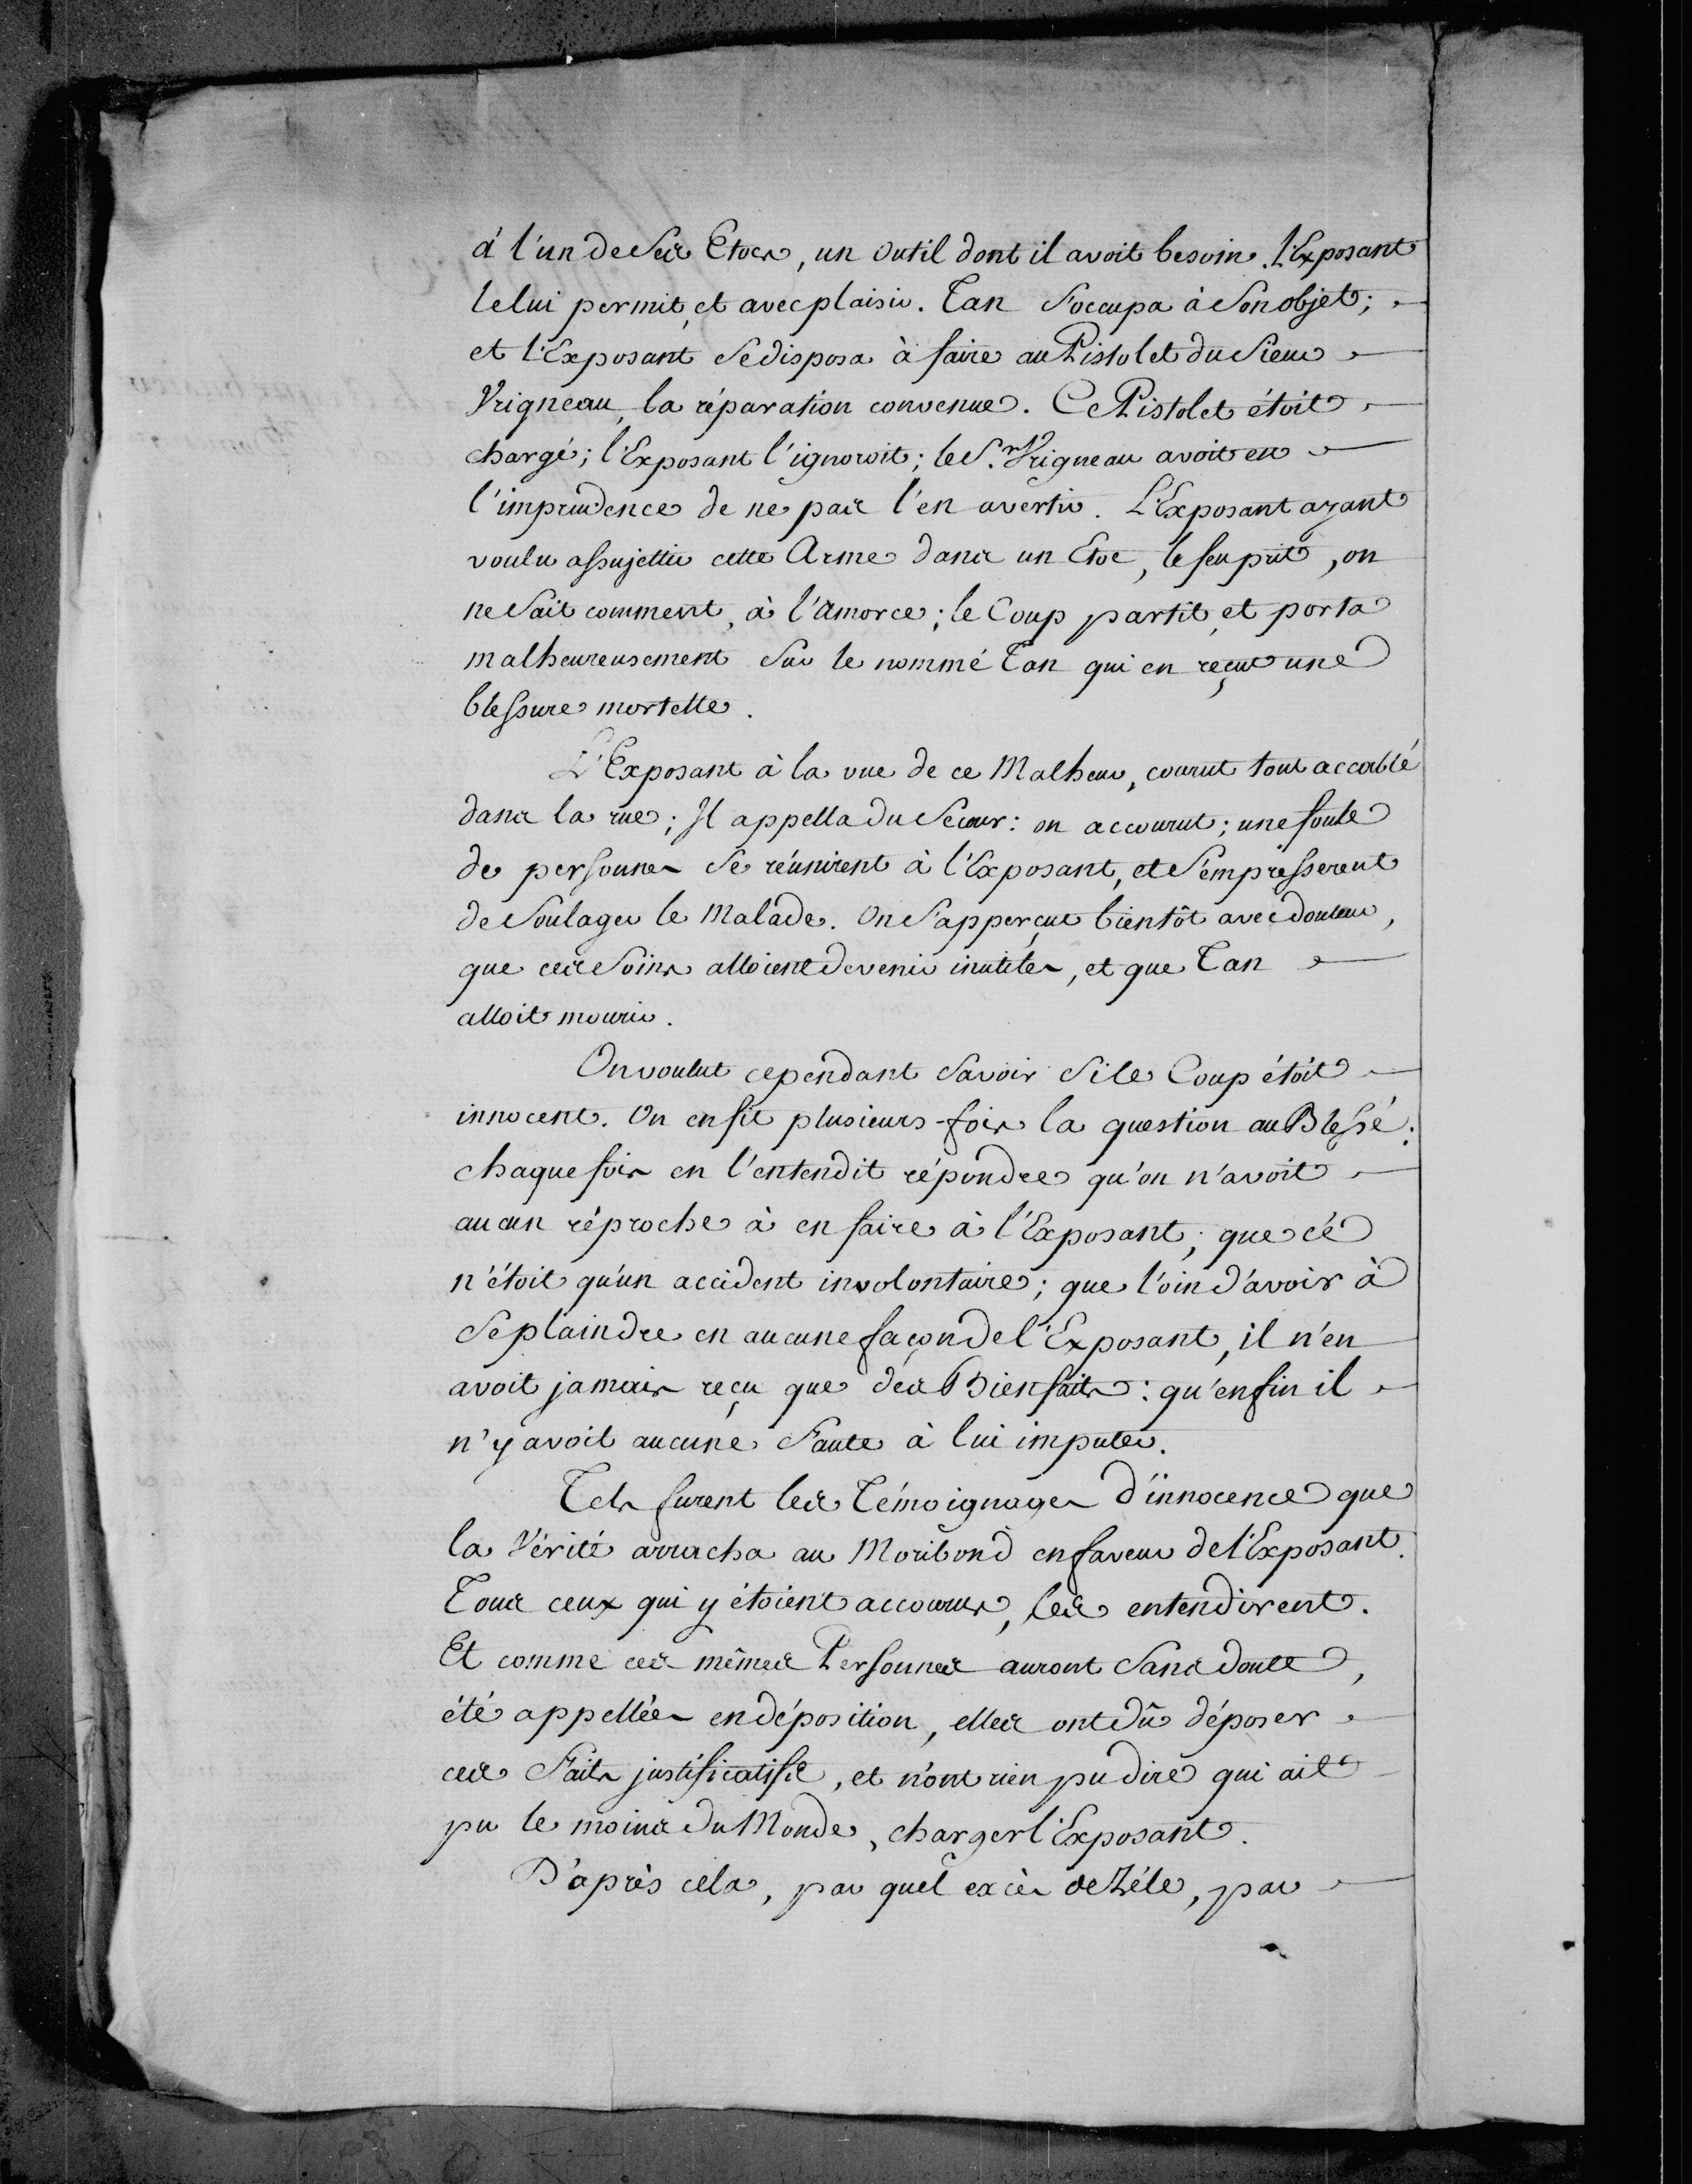 à l'un de ses Etocs, un Outil dont il avoit besoin. L'Exposant
le lui permit, et avec plaisir. Tan s'occupa à son objet;
et l'Exposant se disposa à faire au Pistolet du Sieur
Vrigneau, la réparation convenue. Ce Pistolet étoit
chargé; l'Exposant l'ignoroit; le S.r Vrigneau avoit eu
l'imprudence de ne pas l'en avertir. L'Exposant ayant
voulu assujettir cette Arme dans un Etoc, le feu prit, on
ne sait comment, à l'amorce; le Coup partit, et porta
malheureusement sur le nommé Tan qui en reçut une
blessure mortelle.
L'Exposant à la vue de ce Malheur, courut tout accablé
dans la rue; Il appella du Secours: on accourut; une foule
de personnes se réunirent à l'Exposant, et s'empresserent
de soulager le Malade. On s'apperçut bientôt avec douleur,
que ces soins alloient devenir inutiles, et que Tan
alloit mourir.
On voulut cependant savoir si le Coup étoit
innocent. On en fit plusieurs-fois la question au Blessé:
chaque fois on l'entendit répondre qu'on n'avoit
aucun réproche à en faire à l'Exposant; que ce
n'étoit qu'un accident involontaire; que loin d'avoir à
se plaindre en aucune façon de l'Exposant, il n'en
avoit jamais reçu que des Bienfaits: qu'enfin il
n'y avoit aucune Faute à lui imputer.
Tels furent les Témoignages d'innocence que
la Vérité arracha au Moribond en faveur de l'Exposant.
Tous ceux qui y étoient accourus, les entendirent.
Et comme ces mêmes Personnes auront sans doute,
été appellées en déposition, elles ont dû déposer
ces Faits justificatifs, et n'ont rien pu dire qui ait
pu le moins du Monde, charger l'Exposant.
D'après cela, par quel excès de Zéle, par